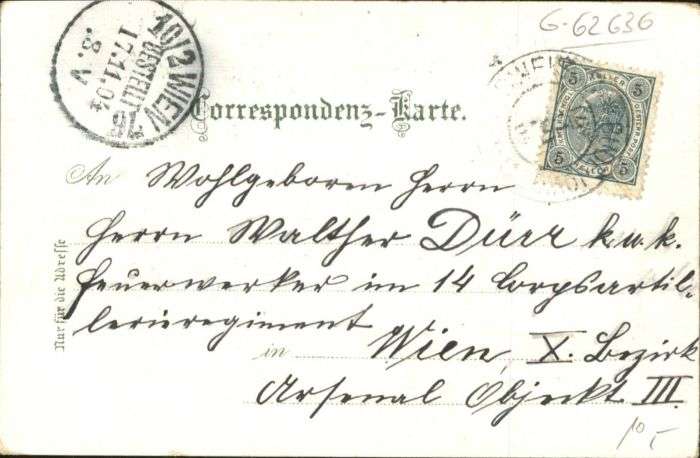 G-62636
10/2 WIEN
BESTELLT
17.11.04
8. V
5 5
5 5
Correspondenz-Karte.
An Wohlgeboren Herrn
Herrn Walther Dürr k.u.k.
Feuerwerker im 14 Corpsartil-
lerieregiment
in Wien, X. Bezirk
Arsenal Objekt III.
Nur für die Adresse
10,-